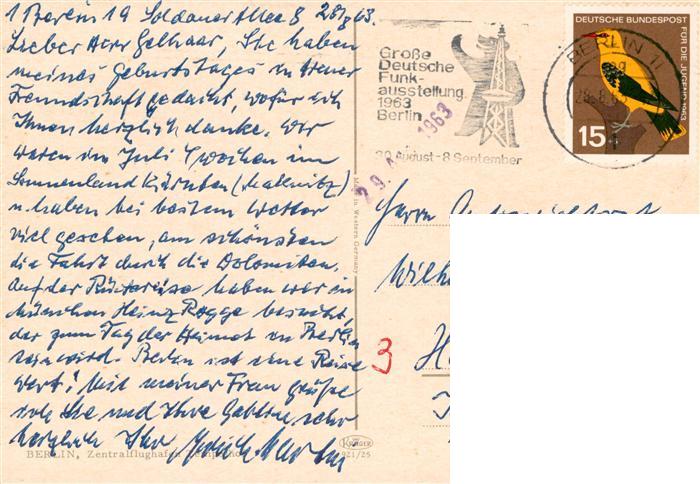 1 Berlin 19 Soldauer Allee 8 28/8 63.
Lieber Herr Gelhaar, Sie haben
meines Geburtstages in treuer
Freundschaft gedacht, wofür ich
Ihnen herzlich danke. Wir
waren im Juli 4 Wochen im
Sonnenland Kärnten (Mallnitz)
u. haben bei bestem Wetter
viel gesehen, am schönsten
die Fahrt durch die Dolomiten.
Auf der Rückreise haben wir in
München Heinz Rogge besucht,
der zum Tag der Heimat in Berlin
sein wird. Berlin ist eine Reise
wert! Mit meiner Frau grüße
ich Sie und Ihre Gattin sehr
herzlich Ihr
BERLIN, Zentralflughafen Tempelhof
Große
Deutsche
Funk-
ausstellung
1963
Berlin
30 August - 8 September
BERLIN 11
DEUTSCHE BUNDESPOST
FÜR DIE JUGEND 1963
15
1963
Made in Western Germany
Herrn
3
KRÜGER
921/25